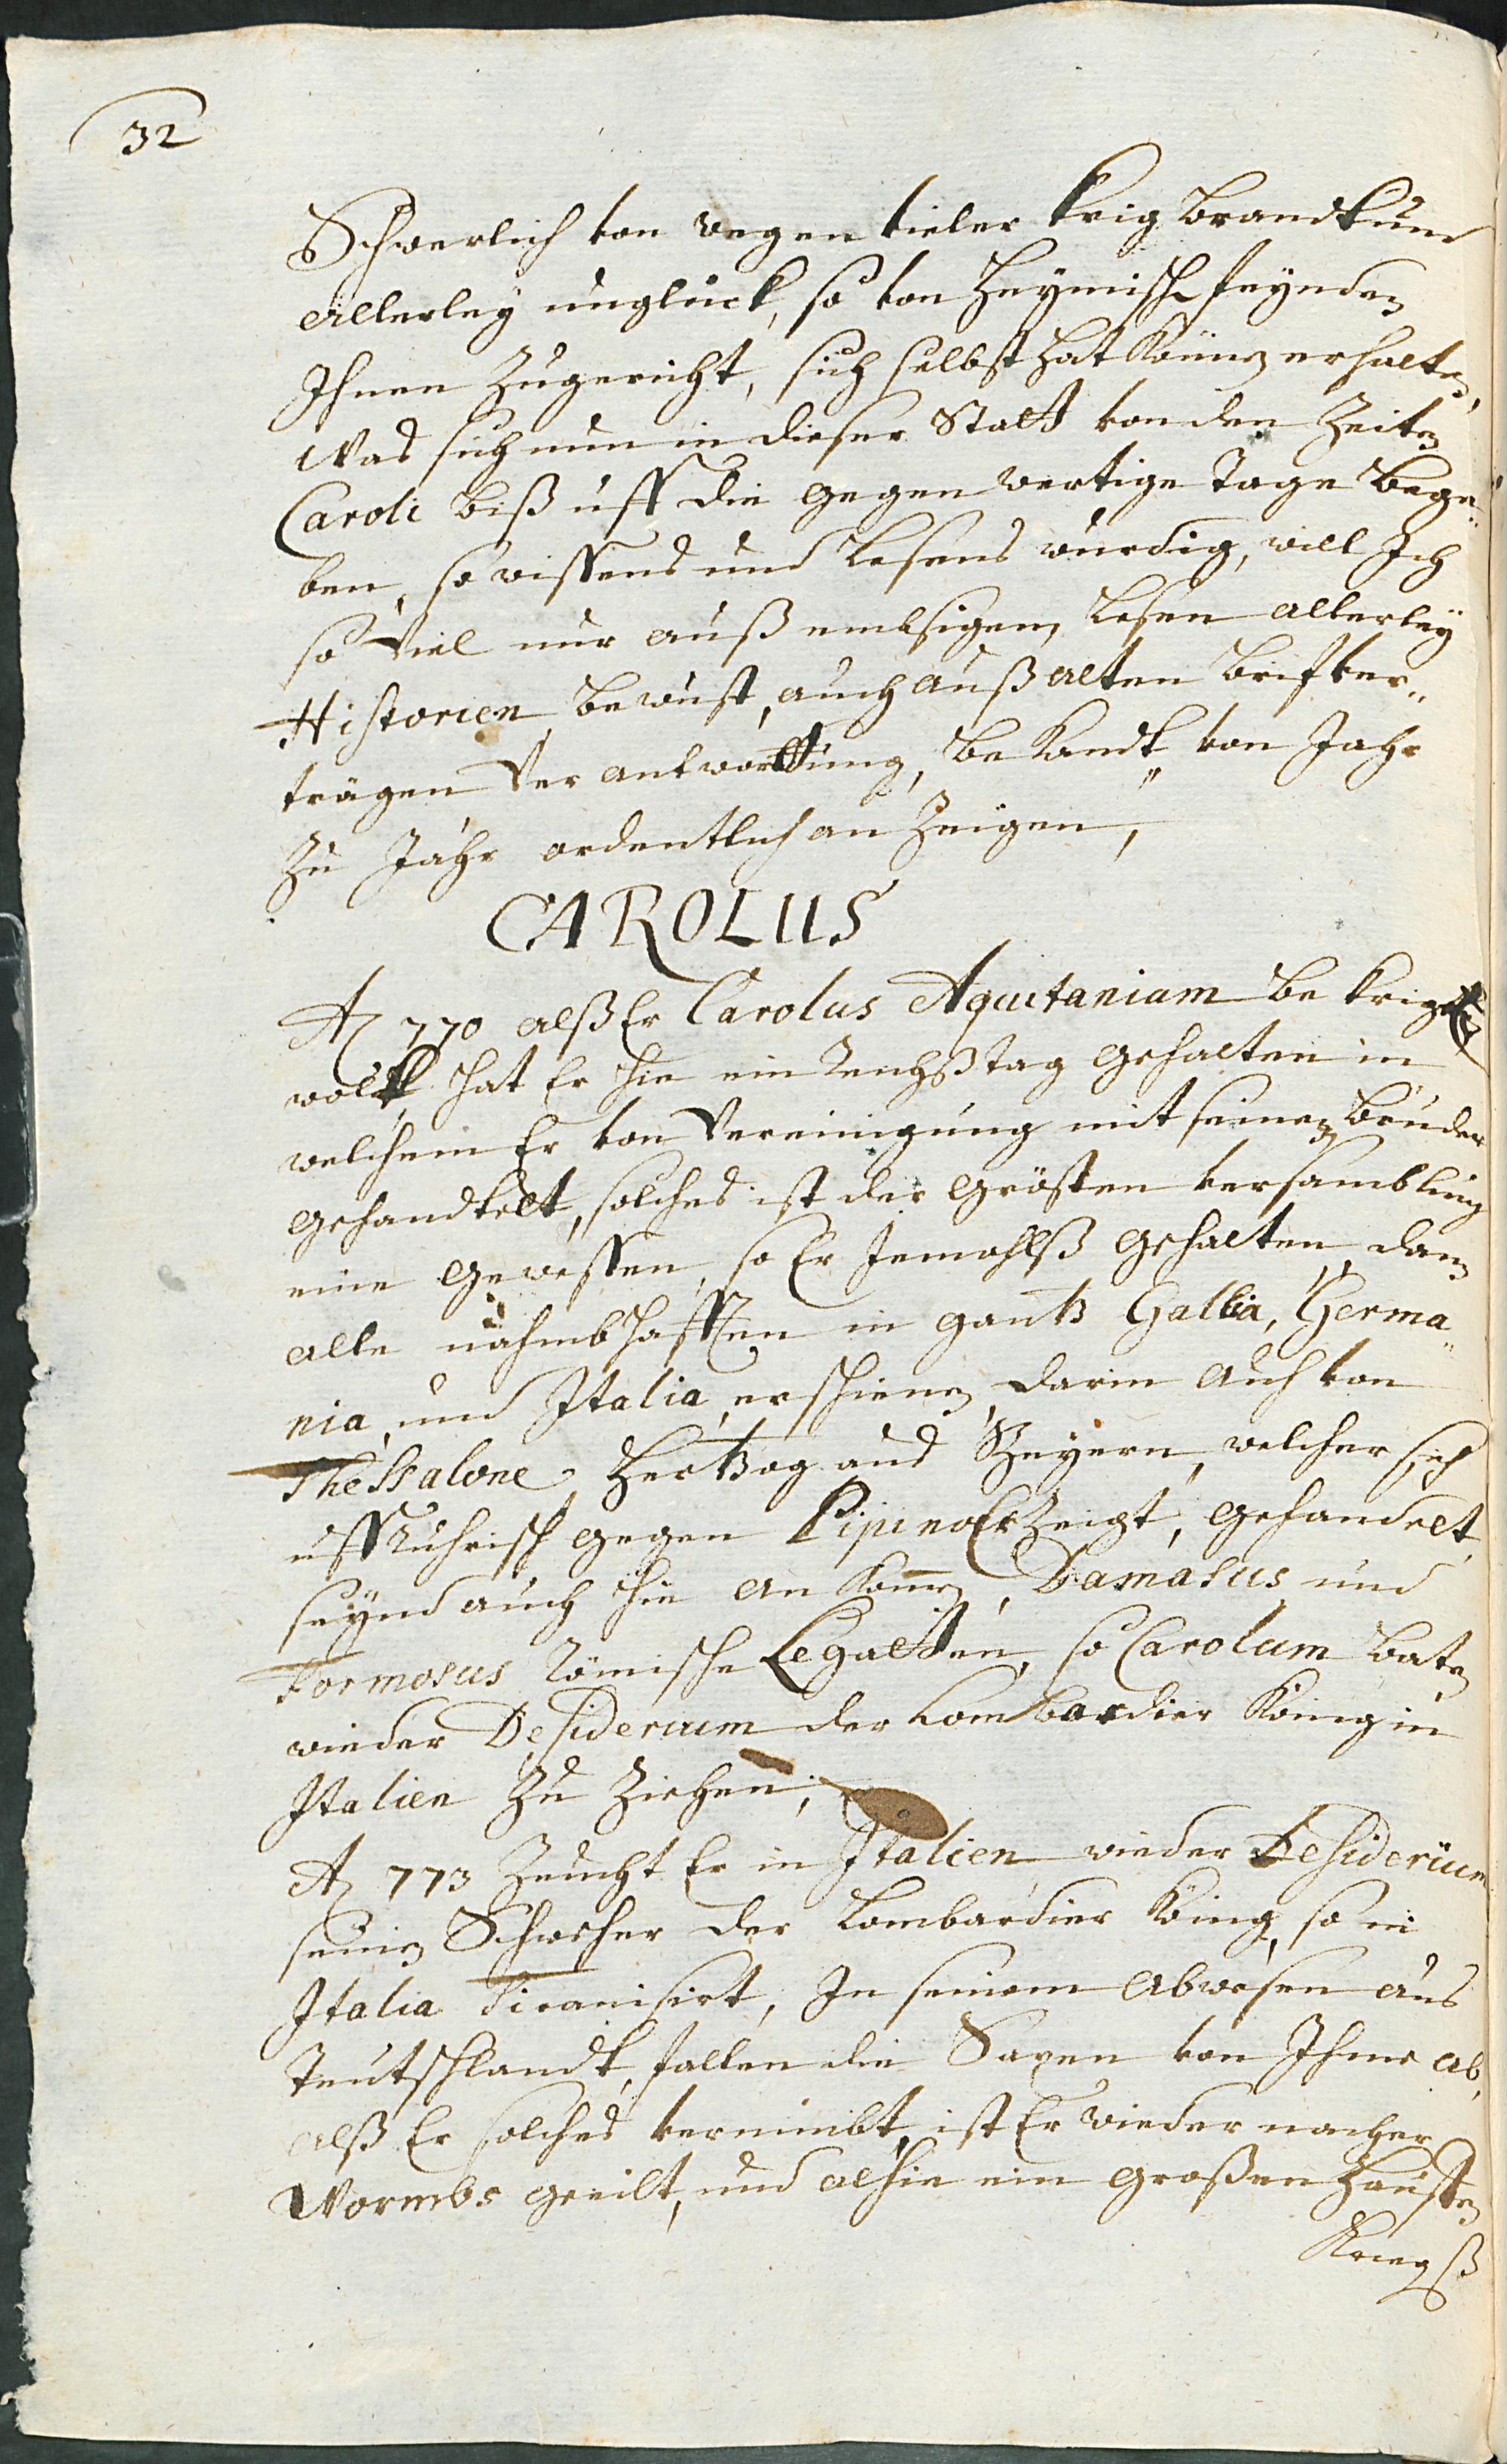 32
Schwerlich von wegen vieler krig brandt und
allerley unglück, so von heymisch feynden
Ihnen zugericht, sich selbst hat können erhalten,
Was sich nun in dieser Statt von den Zeiten
Caroli biß uff die gegenwertige Tage bege„
ben, so wissens und Lesens würdig, will Ich
so viel mir auß embsigem Lesen allerley
Historien bewust, auch auß alten brif ver„
trägen Verantworttung, bekandt von Jahr
zu Jahr ordentlich anzeigen,
CAROLUS
Aō 770 alß Er Carolus Aquitaniam bekrigen
wolt, hat Er hie ein Reichßtag gehalten in
welchem Er von Vereinigung mit seinem bruder
gehandtelt, solches ist der Grösten versamblung
eine gewessen, so Er Jemahlß gehalten, dann
alle nahmbhafften in gantz Gallia, Germa„
nia, und Italia, erschienen, darin auch von
Thessalone, Hertzog aus Beyern, welcher sich
uffruhrisch gegen Pipino Erzeigt, gehandelt,
seynd auch hie ankommen, Damasus und
Formosus Römische Legatten, so Carolum baten
wieder Desiderium der Lombardier König in
Italien zu ziehen,
Aō 773 Zeucht Er in Italien wieder Desiderium
seinen Schweher der Lombardier König, so in
Italia Tiranisirt, In seinem abwesen aus
Teutschlandt, fallen die Saxen von Ihme ab,
alß Er solches vernimbt, ist Er wieder nacher
Wormbs geeilt, und alhie ein großen hauffen
Kriegß